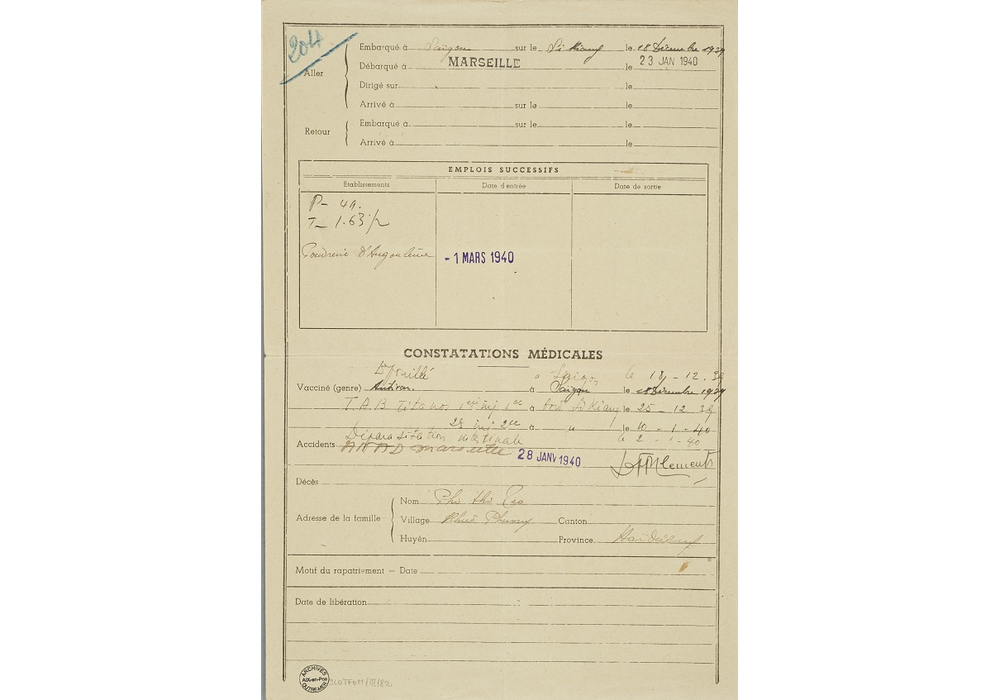 204
Aller
Embarqué à Saïgon sur le Si Kiang le 18 Décembre 1939
Débarqué à MARSEILLE le 23 JAN 1940
Dirigé sur le
Arrivé à sur le le
Retour
Embarqué à sur le le
Arrivé à le
EMPLOIS SUCCESSIFS
Etablissements Date d'entrée Date de sortie
P_ 49.
T_ 1.63 1/2
Poudrerie d'Angoulême - 1 MARS 1940
CONSTATATIONS MÉDICALES
Epouillé à Saïgon le 18 - 12 . 39
Vacciné (genre) Antivar. à Saïgon le 18 Décembre 1939
T.A.B. Tétanos 1ère inj bord Si Kiang le 25 - 12 39
2e inj à " le 10 - 1 - 40
Déparasitation intestinale le 2 - 1 - 40
Accidents Marseille 28 JANV 1940
Décès
Adresse de la famille
Nom Thi
Village Canton
Huyên Province Haiduong
Motif du rapatriement — Date
Date de libération
ARCHIVES
AIX-en-Pce
OUTRE-MER